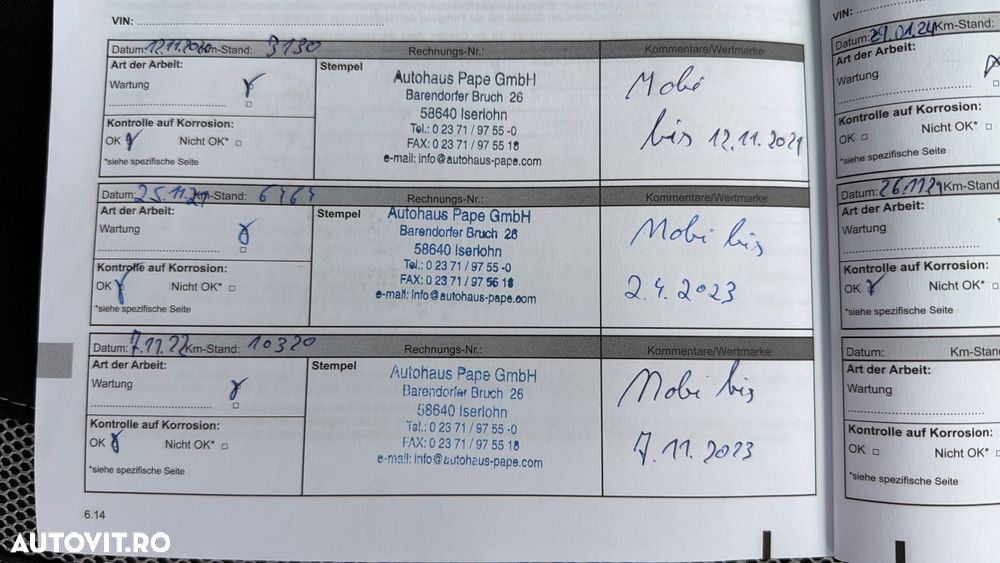 VIN:
Datum: 12.11.2020 Km-Stand: 3130 Rechnungs-Nr.: Kommentare/Wertmarke
Art der Arbeit: Stempel
Wartung
Autohaus Pape GmbH
Barendorfer Bruch 26
58640 Iserlohn
Tel.: 0 23 71 / 97 55 -0
FAX: 0 23 71 / 97 55 18
e-mail: info@autohaus-pape.com
Mobi
bis 12.11.2021
Kontrolle auf Korrosion:
OK Nicht OK*
*siehe spezifische Seite
Datum: 25.11.21 Km-Stand: 6464 Kommentare/Wertmarke
Art der Arbeit: Stempel
Wartung
Autohaus Pape GmbH
Barendorfer Bruch 26
58640 Iserlohn
Tel.: 0 23 71 / 97 55 -0
FAX: 0 23 71 / 97 55 18
e-mail: info@autohaus-pape.com
Mobi bis
2.4.2023
Kontrolle auf Korrosion:
OK Nicht OK*
*siehe spezifische Seite
Datum: 7.11.22 Km-Stand: 10320 Rechnungs-Nr.: Kommentare/Wertmarke
Art der Arbeit: Stempel
Wartung
Autohaus Pape GmbH
Barendorfer Bruch 26
58640 Iserlohn
Tel.: 0 23 71 / 97 55 -0
FAX: 0 23 71 / 97 55 18
e-mail: info@autohaus-pape.com
Mobi bis
7.11.2023
Kontrolle auf Korrosion:
OK Nicht OK*
*siehe spezifische Seite
6.14
VIN:
Datum: 29.01.24 Km-Stand:
Art der Arbeit:
Wartung
Kontrolle auf Korrosion:
OK Nicht OK*
*siehe spezifische Seite
Datum: 26.11.24 Km-Stand:
Art der Arbeit:
Wartung
Kontrolle auf Korrosion:
OK Nicht OK*
*siehe spezifische Seite
Datum: Km-Stand:
Art der Arbeit:
Wartung
Kontrolle auf Korrosion:
OK Nicht OK*
*siehe spezifische Seite
AUTOVIT.RO